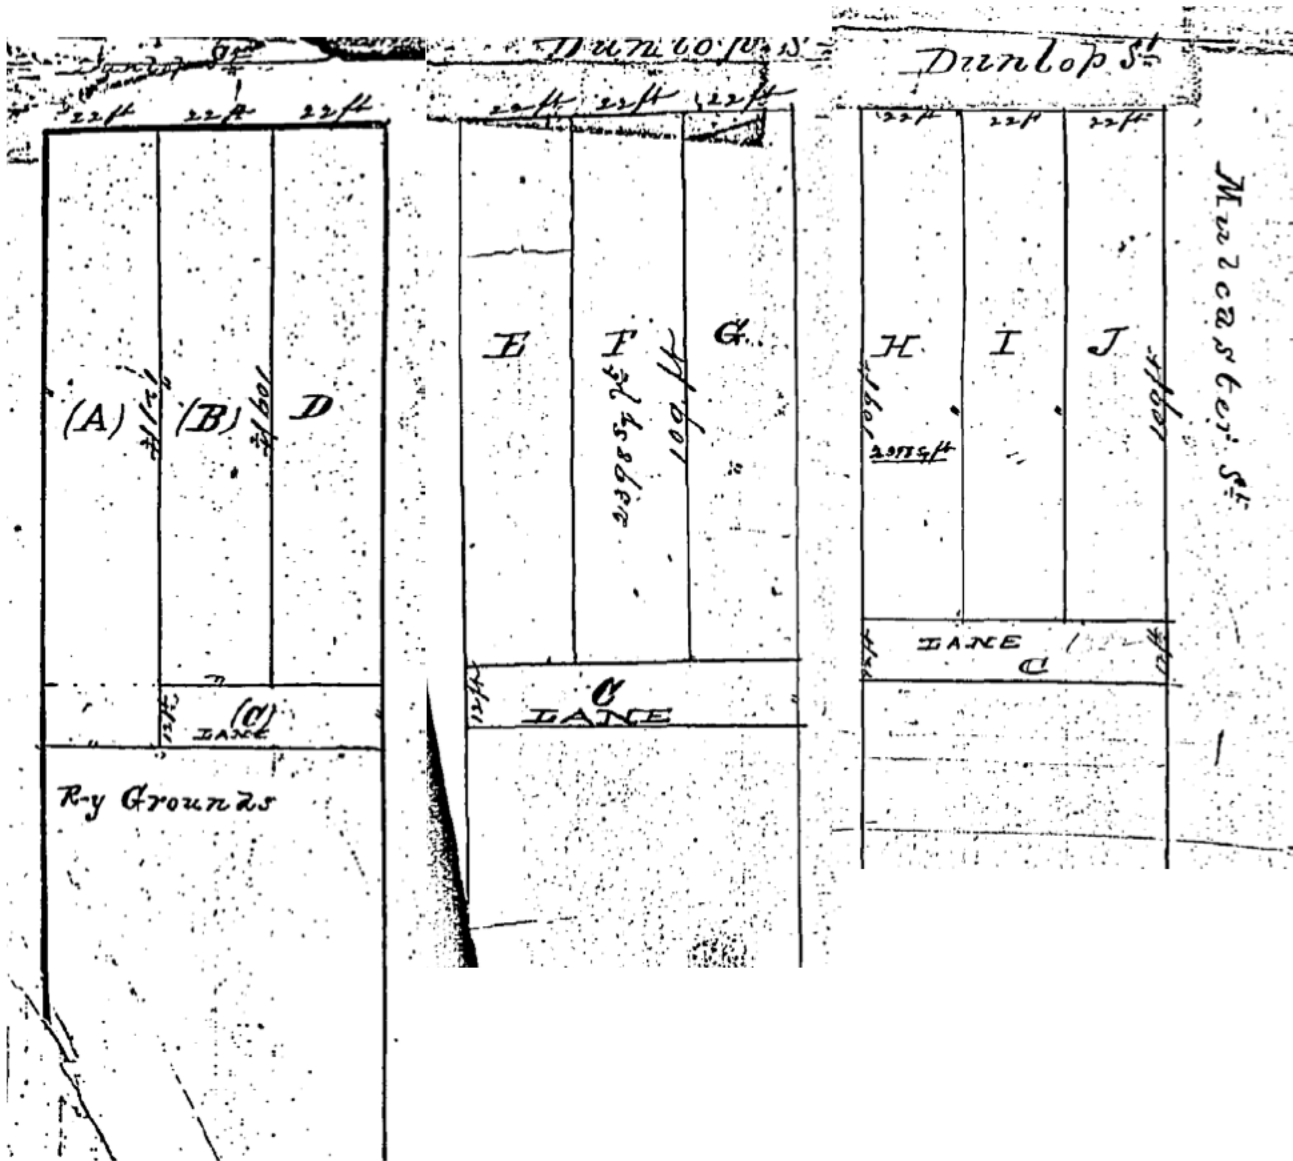 Dunlop St
22 ft 22 ft 22 ft
(A) 121 ft (B) 109 ft D
12 ft (C)
LANE
R-y Grounds
Dunlop S
22 ft 22 ft 22 ft
E F G
2398 sq ft 109 ft
12 ft C
LANE
Dunlop St
22 ft 22 ft 22 ft
H I J
109 ft 109 ft
2398 sq ft
12 ft LANE 12 ft
C
Murcaster St